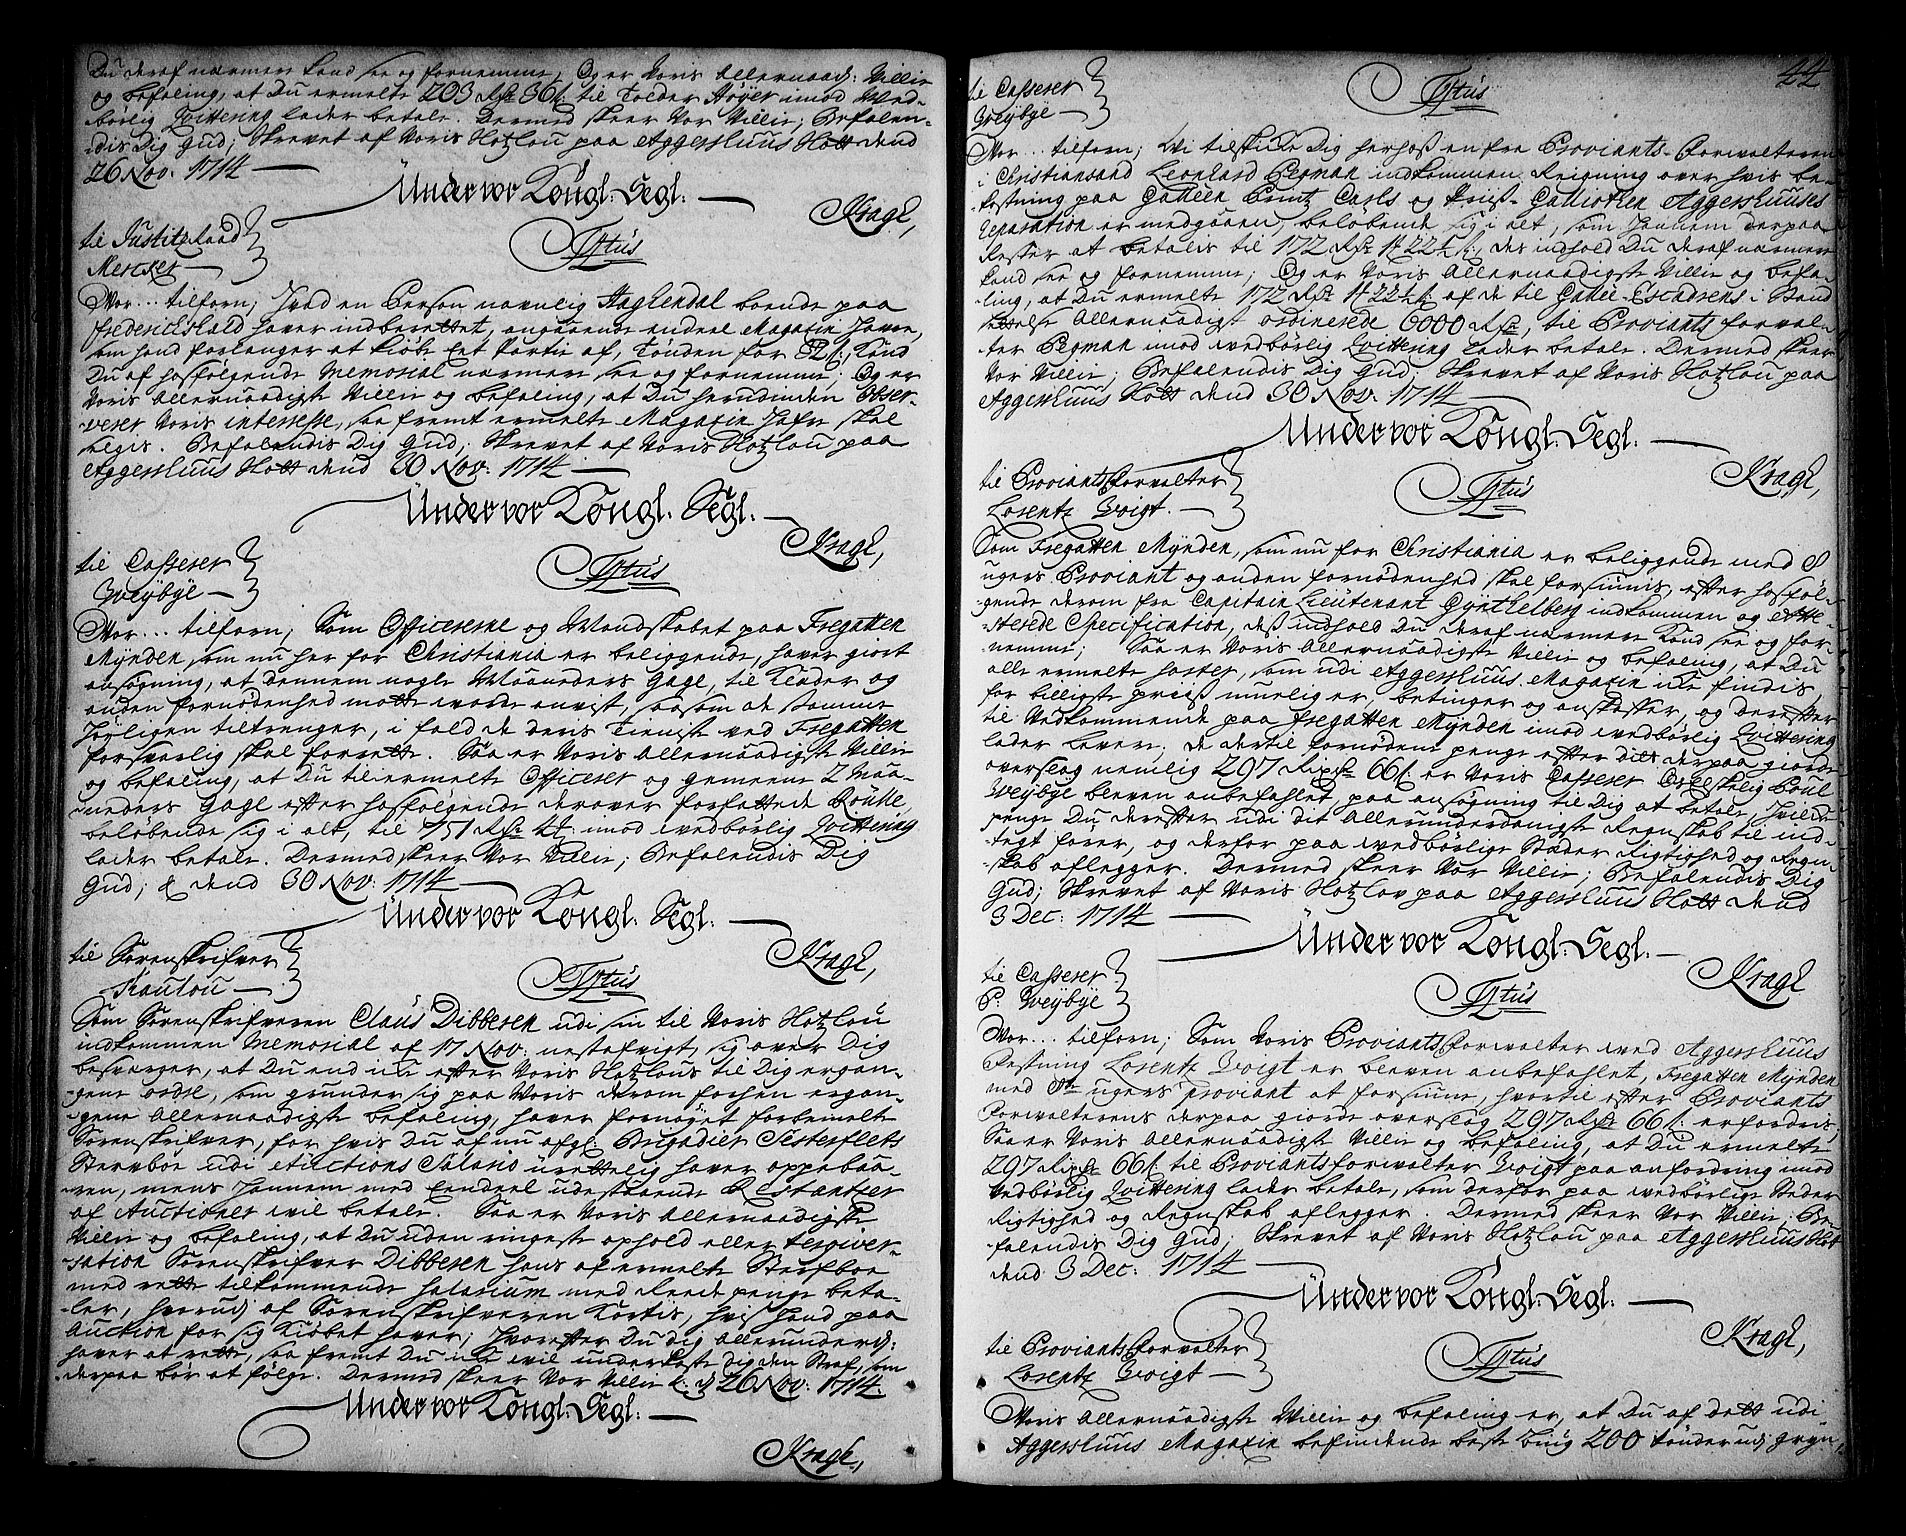 Du deraf nærmere kand see og fornemme, Og er Voris Allernaad: Villie
og befaling, at Du ermelte 203 Rdr 36 s. til Tolder Høyer imod Ved-
børlig Qvittering lader betale. Dermed skeer Vor Villie; Befalen-
dis Dig Gud; Skrevet af Voris Hotzlou paa Aggershuus Slott dend
26 Nov. 1714
Under vor Kongl. Segl.
Kragh,
til Justitz Raad
Mercker
Vor... tilforn; Hvad en Person navnlig Haghendal boende paa
Friderichshald haver indberettet, angaaende endeel Magazin Havre,
som hand forlanger at kiøbe Eet Partie af, Tønden for 52 s. Kand
Du af hosfølgende Memorial nærmere see og fornemme; Og er
Voris Allernaadigste Villie og befaling, at Du herudinden Obser-
verer Voris interesse, saa fremt ermelte Magazin Hafre skal
selgis. Befalendis Dig Gud; Skrevet af Voris Hotzlou paa
Aggershuus Slott dend 30 Nov: 1714
Under vor Kongl. Segl.
Kragh,
til Casserer
Weybye
Vor... tilforn; Som Officererne og Mandskabet paa Fregatten
Mynden, som nu her for Christiania er beliggende, haver giort
ansøgning, at dennem nogle Maaneders Gage, til Klæder og
anden fornødenhed motte worde anvist, saasom de samme
høyligen tiltrenger, i fald de deris Tieniste ved Fregatten
forsvarlig skal forrette. Saa er Voris Allernaadigste Villie
og befaling, at Du til ermelte Officerer og gemeene 2 Maa-
neders Gage efter hosfølgende derover forfattede Rulle,
beløbende sig i alt, til 751 Rdr imod wedbørlig Qvittering
lader betale. Dermed skeer Vor Villie; Befalendis Dig
Gud; & dend 30 Nov: 1714
Under vor Kongl. Segl.
Kragh,
til Sorenskrifver
Som Sorenskrifveren Claus Dibbesen udi sin til Voris Hotzlou
indkommen Memorial af 17 Nov: nestafvigt, sig over Dig
besværger, at Du end icke efter Voris Hotzlous til Dig ergan-
gene ordre, som grunder sig paa Voris derom forhen ergan-
gene Allernaadigste befaling, haver fornøyet forbemelte
Sorenskrifver, for hvis Du af nu afg: Brigadier Sesterflets
Sterfboe udi Auctions Salario urettelig haver oppebaa-
ren, mens hannem med Eendeel udestaaende Restantzer
af Auctioner wil betale. Saa er Voris Allernaadigste
Villie og befaling, at Du uden ringeste ophold eller tergiver-
sation Sorenskrifver Dibbesen hans af ermelte Sterfboe
med rette tilkommende Salarium med Reede penge beta-
ler, af Sorenskrifveren Kortis, hvis hand paa
Auction for sig kiøbet haver; Hvorefter Du dig Allerunderd:
haver at rette, saa fremt Du icke wil underkaste dig den Straf, som
derpaa bør at følge. Dermed skeer Vor Villie &: d 26 Nov. 1714.
Under vor Kongl. Segl.
Kragh,
44
til Casserer
Weybye
Vor... tilforn; Vi tilskicke Dig herhoß en fra Proviants-Forwalteren
i Christiansand Leonhard Pegman indkommen Reigning over hvis be-
kostning paa Galleen Printz Carls og Skieß-Galliothen Aggershuuses
Reparation er medgaaen, beløbende sig i alt, som hannem derpaa
Rester at betalis til 172 Rdr, des indhold Du deraf nærmere
kand see og fornemme; Og er Voris Allernaadigste Villie og befa-
ling, at Du ermelte 172 Rdr af de til Gallee-Escadrens i Stand
settelse Allernaadigst ordinerede 6000 Rdr, til Proviants forval-
ter Pegman imod wedbørlig Qvittering lader betale. Dermed skeer
Vor Villie; Befalendis Dig Gud; Skrevet af Voris Hotzlou paa
Aggershuus Slott dend 30 Nov. 1714
Under vor Kongl. Segl.
Kragh,
til Proviantsforvalter
Lorentz Voigt.
Som Fregatten Mynden, som nu for Christiania er beliggende med 8
ugers Proviant og anden fornødenhed skal forsiunis, efter hosføl-
gende derom fra Capitain Lieutenant Gyntelberg indkommen og atte-
sterede Specification, deß indhold Du deraf nærmere kand see og for-
nemme; Saa er Voris Allernaadigste Villie og befaling, at Du
alle ermelte poster, som udi Aggershuus Magazin icke findis,
for billigste prciß muelig er, betinger og anskaffer, og derefter
til Vedkommende paa Fregatten Mynden imod wedbørlig Qvittering
lader levere; De dertil fornødene penge efter dit derpaa giorde
overslag nemlig 297 Rixdr 66 s. er Voris Casserer Os Elskelig Poul
Weybye bleven anbefahlet, paa ansøgning til Dig at betale, hvilcke
penge Du derefter udi dit Allerunderdanigste Regnskab til ind-
tegt fører, og derfor paa wedbørlige Stæder Rigtighed og Regn-
skab aflegger. Dermed skeer Vor Villie; Befalendis Dig
Gud; Skrevet af Voris Hotzlov paa Aggershuus Slott dend
3 Dec: 1714
Under vor Kongl. Segl.
Kragh
til Casserer
P: Weybye
Vor... tilforn; Som Voris Proviantsforvalter wed Aggershuus
Festning Lorentz Voigt er bleven anbefahlet, Fregatten Mynden
med 8te ugers proviant at forsiune, hvortil efter Proviants
Forwalterens derpaa giorde overslag 297 Rdr 66 s. erfordris,
Saa er Voris Allernaadigste Villie og befaling, at Du ermelte
297 Rixdr 66 s. til Proviantsforwalter Voigt paa anfordring imod
Vedbørlig Qvittering lader betale, som derfor paa wedbørlige Steder
Rigtighed og Regnskab aflegger. Dermed skeer Vor Villie; Be-
falendis Dig Gud; Skrevet af Voris Hotzlou paa Aggershuus Slott
dend 3 Dec: 1714
Under vor Kongl. Segl.
Kragh,
til Proviantsforvalter
Lorentz Voigt
Voris Allernaadigste Villie og befaling er, at Du af dett udi
Aggershuus Magazin befindende beste Bug 200 tønder gryn,